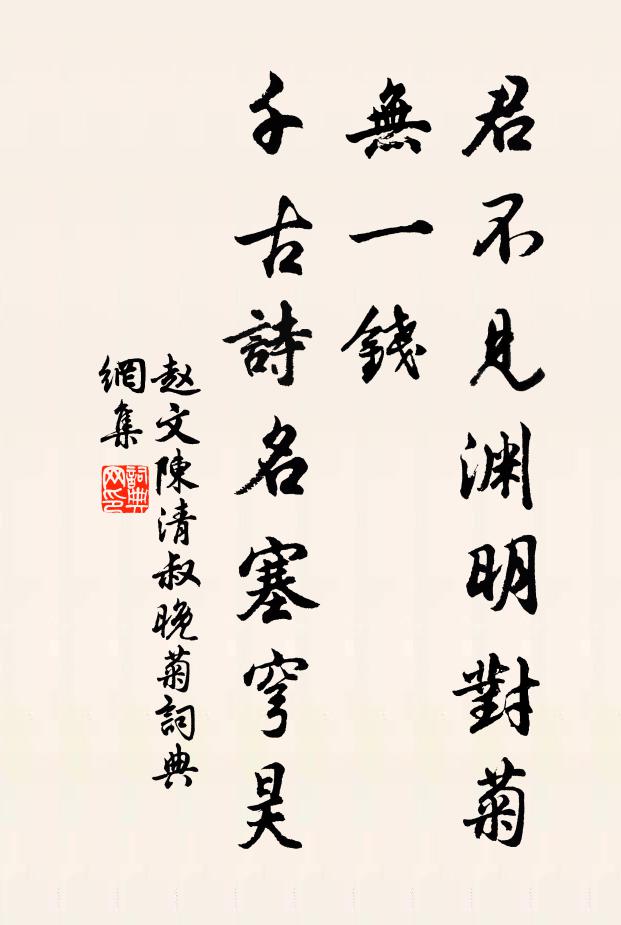 君不見渊明對菊
無一錢
千古詩名塞穹昊
赵文陳清叔晚菊詞典
網集
詞典
网印